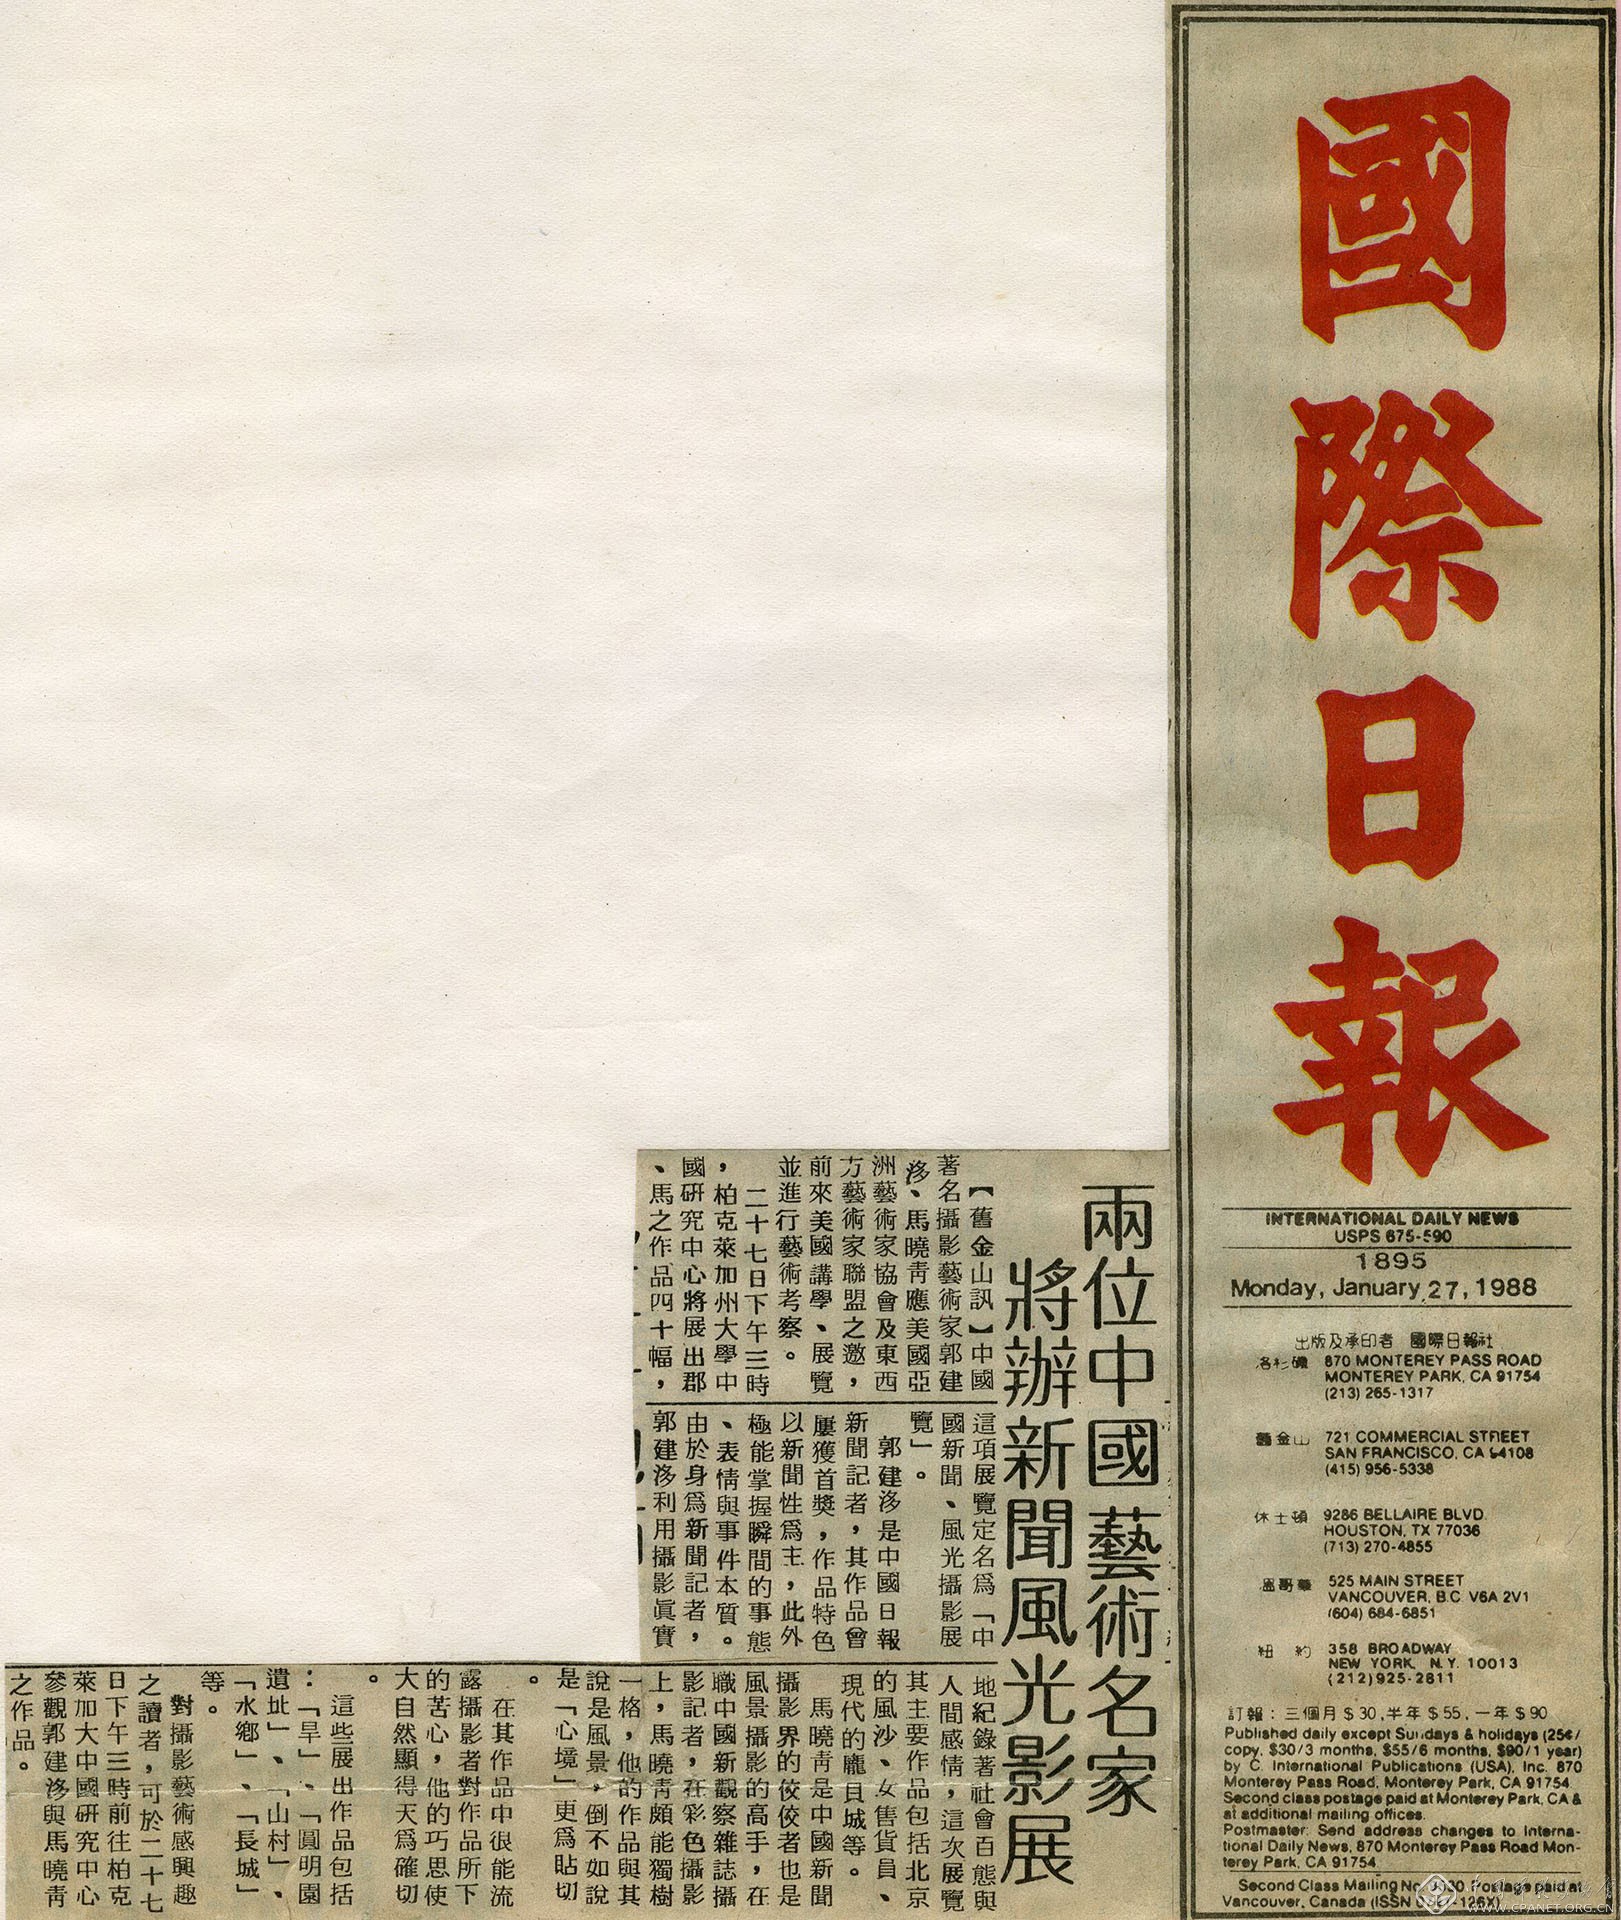 國際日報
INTERNATIONAL DAILY NEWS
USPS 675-590
1895
Monday, January 27, 1988
出版及承印者 國際日報社
洛杉磯 870 MONTEREY PASS ROAD
MONTEREY PARK, CA 91754
(213) 265-1317
舊金山 721 COMMERCIAL STREET
SAN FRANCISCO, CA 94108
(415) 956-5338
休士頓 9286 BELLAIRE BLVD.
HOUSTON, TX 77036
(713) 270-4855
溫哥華 525 MAIN STREET
VANCOUVER, B.C. V6A 2V1
(604) 684-6851
紐約 358 BROADWAY
NEW YORK, N.Y. 10013
(212) 925-2811
訂報：三個月$30,半年$55,一年$90
Published daily except Sundays & holidays (25¢/
copy, $30/3 months, $55/6 months, $90/1 year)
by C. International Publications (USA), Inc. 870
Monterey Pass Road, Monterey Park, CA 91754.
Second class postage paid at Monterey Park, CA &
at additional mailing offices.
Postmaster: Send address changes to Interna-
tional Daily News, 870 Monterey Pass Road Mon-
terey Park, CA 91754
Second Class Mailing No. Postage paid at
Vancouver, Canada (ISSN
兩位中國藝術名家
將辦新聞風光影展
【舊金山訊】中國
著名攝影藝術家郭建
㳄、馬曉青應美國亞
洲藝術家協會及東西
方藝術家聯盟之邀，
前來美國講學、展覽
並進行藝術考察。
二十七日下午三時
，柏克萊加州大學中
國研究中心將展出郡
、馬之作品四十幅，
這項展覽定名爲「中
國新聞、風光攝影展
覽」。
郭建㳄是中國日報
新聞記者，其作品曾
屢獲首獎，作品特色
以新聞性爲主，此外
極能掌握瞬間的事態
、表情與事件本質。
由於身爲新聞記者，
郭建㳄利用攝影眞實
地紀錄著社會百態與
人間感情，這次展覽
其主要作品包括北京
的風沙、女售貨員、
現代的龐貝城等。
馬曉青是中國新聞
攝影界的佼佼者也是
風景攝影的高手，在
職中國新觀察雜誌攝
影記者，在彩色攝影
上，馬曉青頗能獨樹
一格，他的作品與其
說是風景，倒不如說
是「心境」更爲貼切
。
在其作品中很能流
露攝影者對作品所下
的苦心，他的巧思使
大自然顯得天爲確切
。
這些展出作品包括
：「旱」、「圓明園
遺址」、「山村」、
「水鄉」、「長城」
等。
對攝影藝術感興趣
之讀者，可於二十七
日下午三時前往柏克
萊加大中國研究中心
參觀郭建㳄與馬曉青
之作品。
WWW.CPANET.ORG.CN